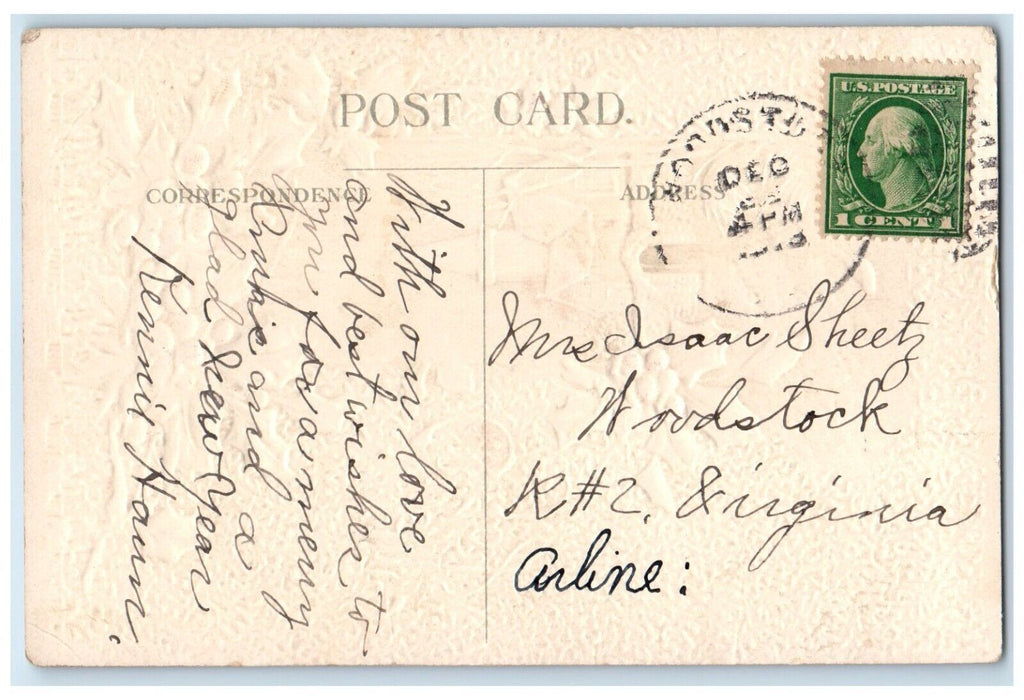 POST CARD.
CORRESPONDENCE
ADDRESS
WOODSTO
DEC
22
4 PM
U.S. POSTAGE
1 CENT 1
With our love
and best wishes to
you for a merry
and a
glad New Year
Kermit Hamn.
Mrs Isaac Sheetz
Woodstock
R#2, Virginia
Arline: